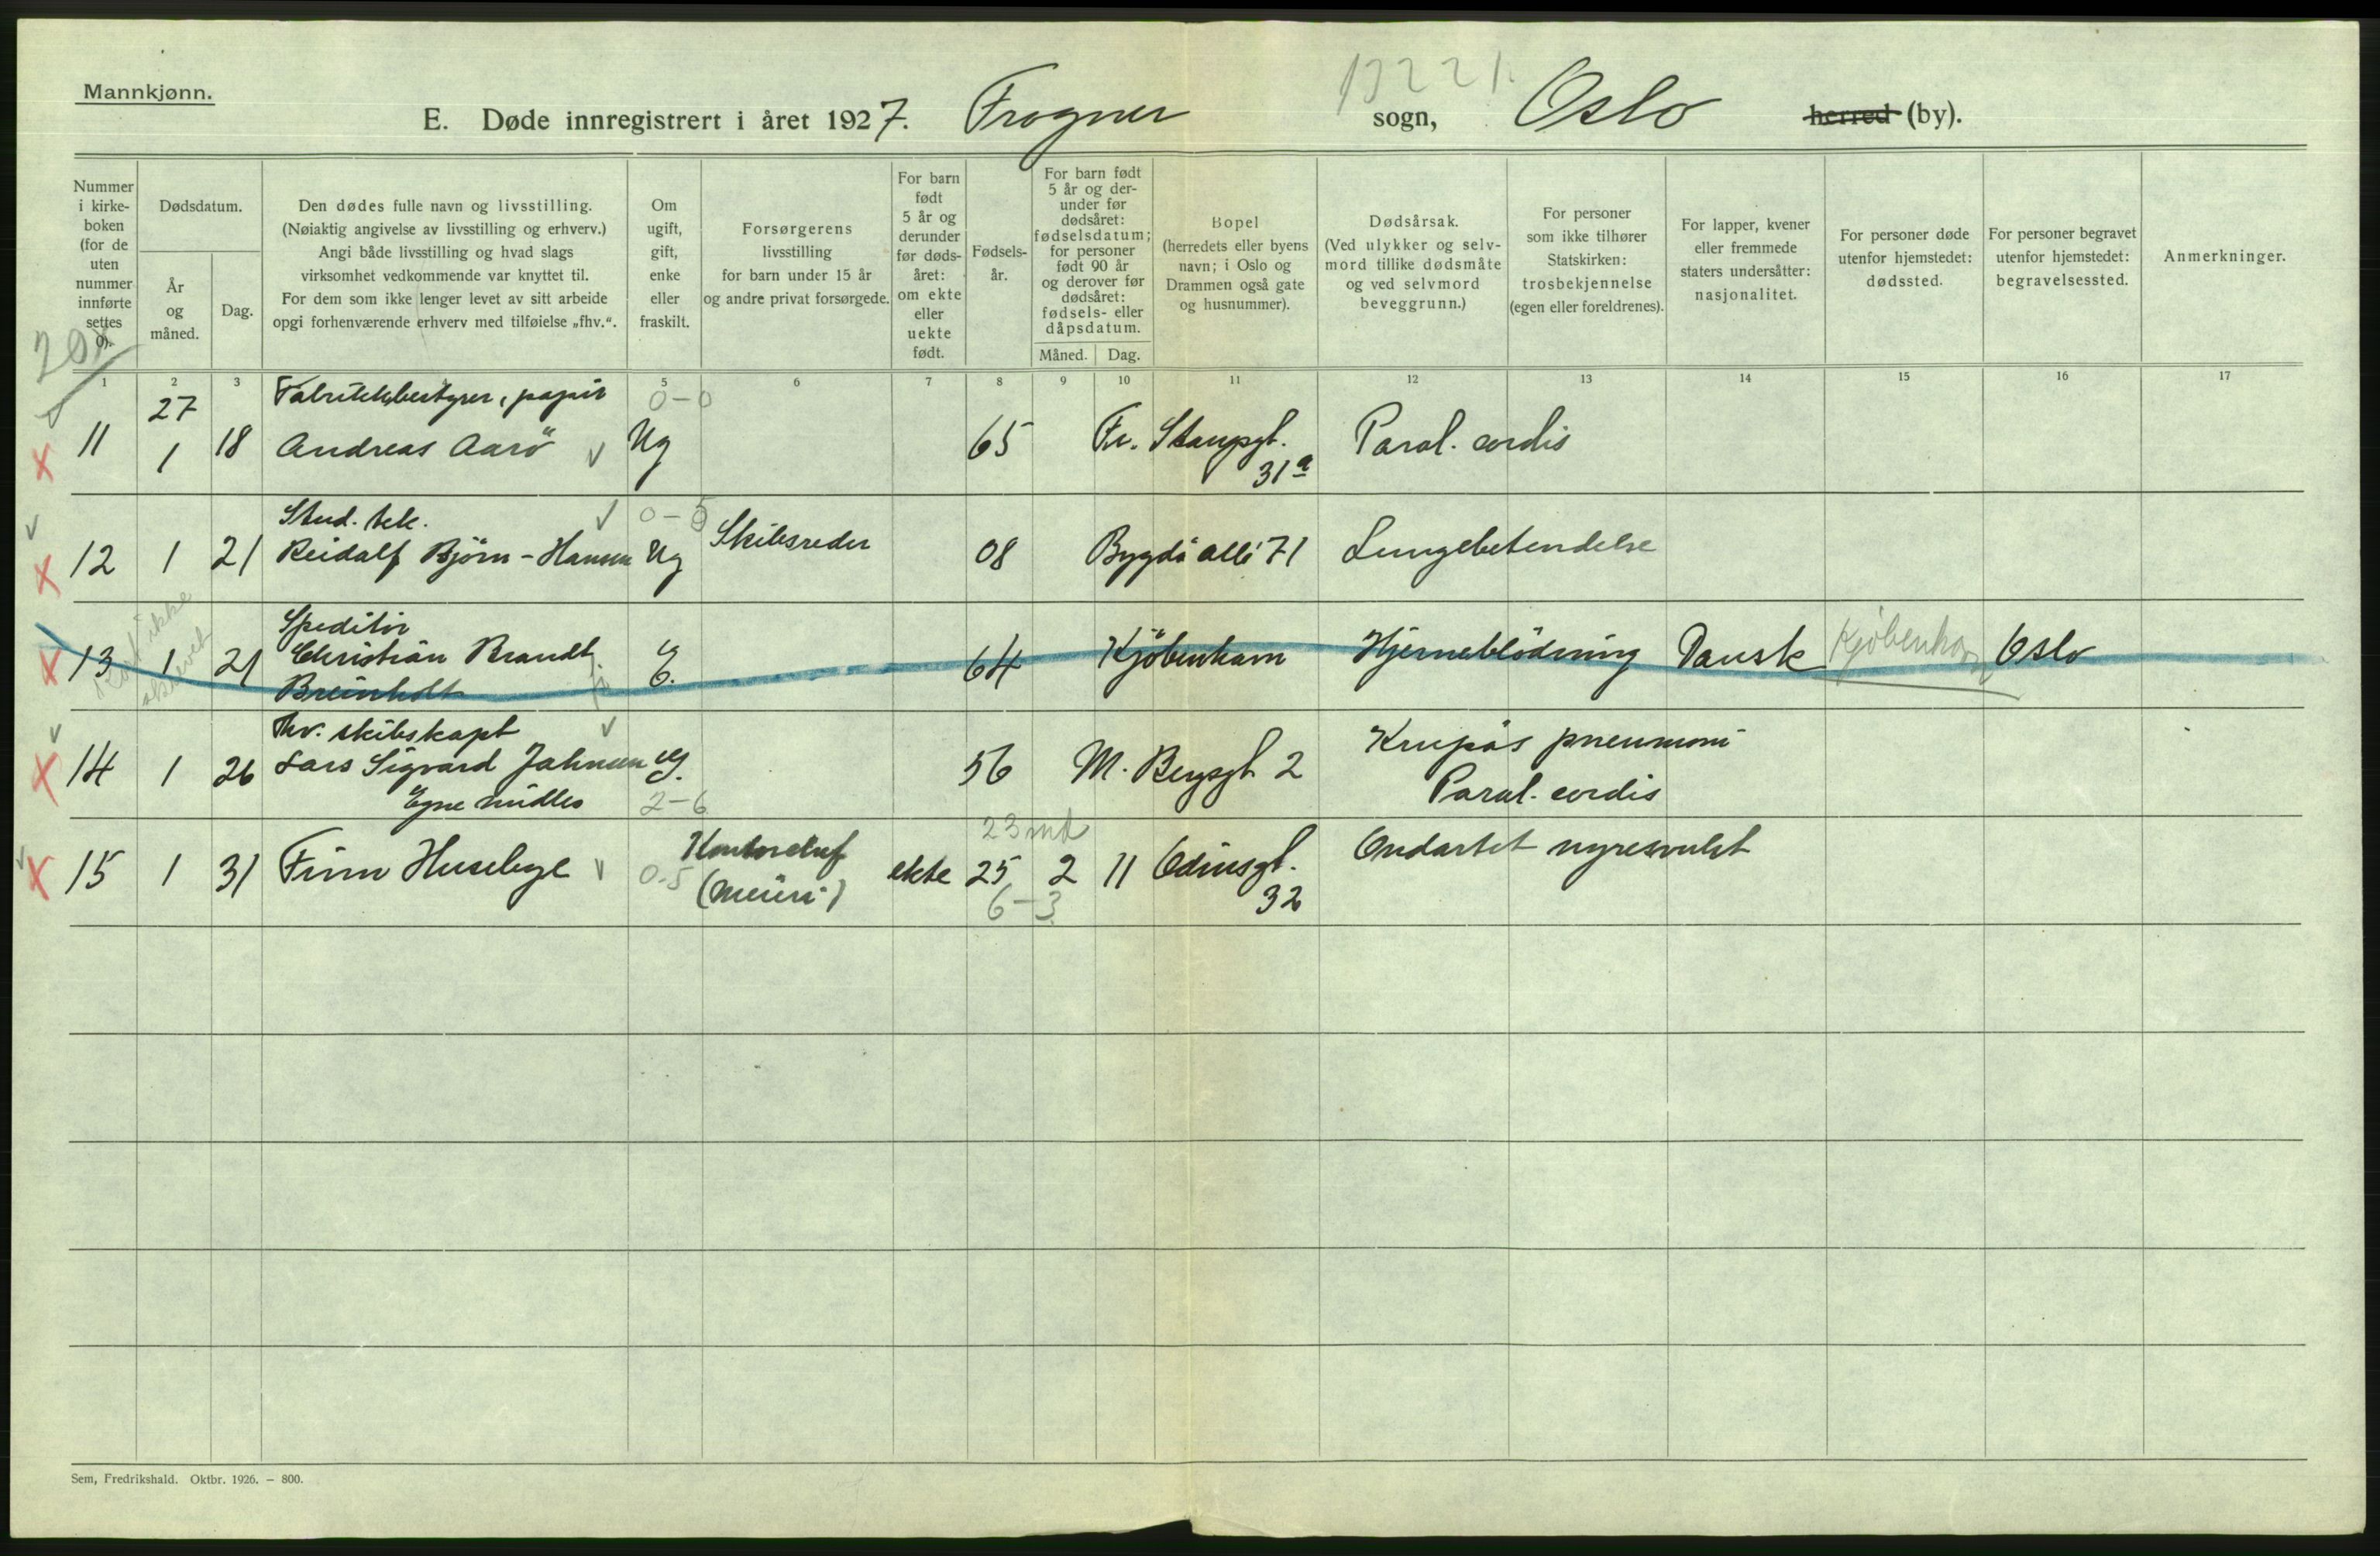 Mannkjønn.
13221.
E. Døde innregistrert i året 1927. Frogner sogn, Oslo herred (by).
Nummer i kirke-boken (for de uten nummer innførte settes 0).
Dødsdatum.
År og måned.
Dag.
Den dødes fulle navn og livsstilling.
(Nøiaktig angivelse av livsstilling og erhverv.)
Angi både livsstilling og hvad slags
virksomhet vedkommende var knyttet til.
For dem som ikke lenger levet av sitt arbeide
opgi forhenværende erhverv med tilføielse „fhv.“.
Om ugift, gift, enke eller fraskilt.
Forsørgerens livsstilling
for barn under 15 år
og andre privat forsørgede.
For barn født 5 år og derunder før døds-året: om ekte eller uekte født.
Fødsels-år.
For barn født 5 år og der-under før dødsåret: fødselsdatum; for personer født 90 år og derover før dødsåret: fødsels- eller dåpsdatum.
Måned. Dag.
Bopel
(herredets eller byens navn; i Oslo og Drammen også gate og husnummer).
Dødsårsak.
(Ved ulykker og selv-mord tillike dødsmåte og ved selvmord beveggrunn.)
For personer som ikke tilhører Statskirken: trosbekjennelse (egen eller foreldrenes).
For lapper, kvener eller fremmede staters undersåtter: nasjonalitet.
For personer døde utenfor hjemstedet: dødssted.
For personer begravet utenfor hjemstedet: begravelsessted.
Anmerkninger.
1 2 3 5 6 7 8 9 10 11 12 13 14 15 16 17
27 Fabrikkbestyrer, papir 0-0
11 1 18 Andreas Aarö Ug 65 Fr. Stangsgt. 31a Paral. cordis
Stud. tek. 0-5
12 1 21 Reidalf Björn-Hansen Ug Skibsreder 08 Bygdö allé 71 Lungebetendelse
Kort ikke skrevet
Speditör
13 1 21 Christian Brandt G. 64 Kjöbenhavn Hjerneblödning Dansk Kjöbenhavn Oslo
Breinholt
Fhv. skibskapt
14 1 26 Lars Sigvard Jahnsen G. 56 M. Bergsgt 2 Krupös pneumoni
Egne midler 2-6 Paral. cordis
23 md
15 1 31 Finn Huseby 0-5 Kontorchef (meieri) ekte 25 2 11 Odinsgt. 32 Ondartet nyresvulst
6-3
Sem, Fredrikshald. Oktbr. 1926. — 800.